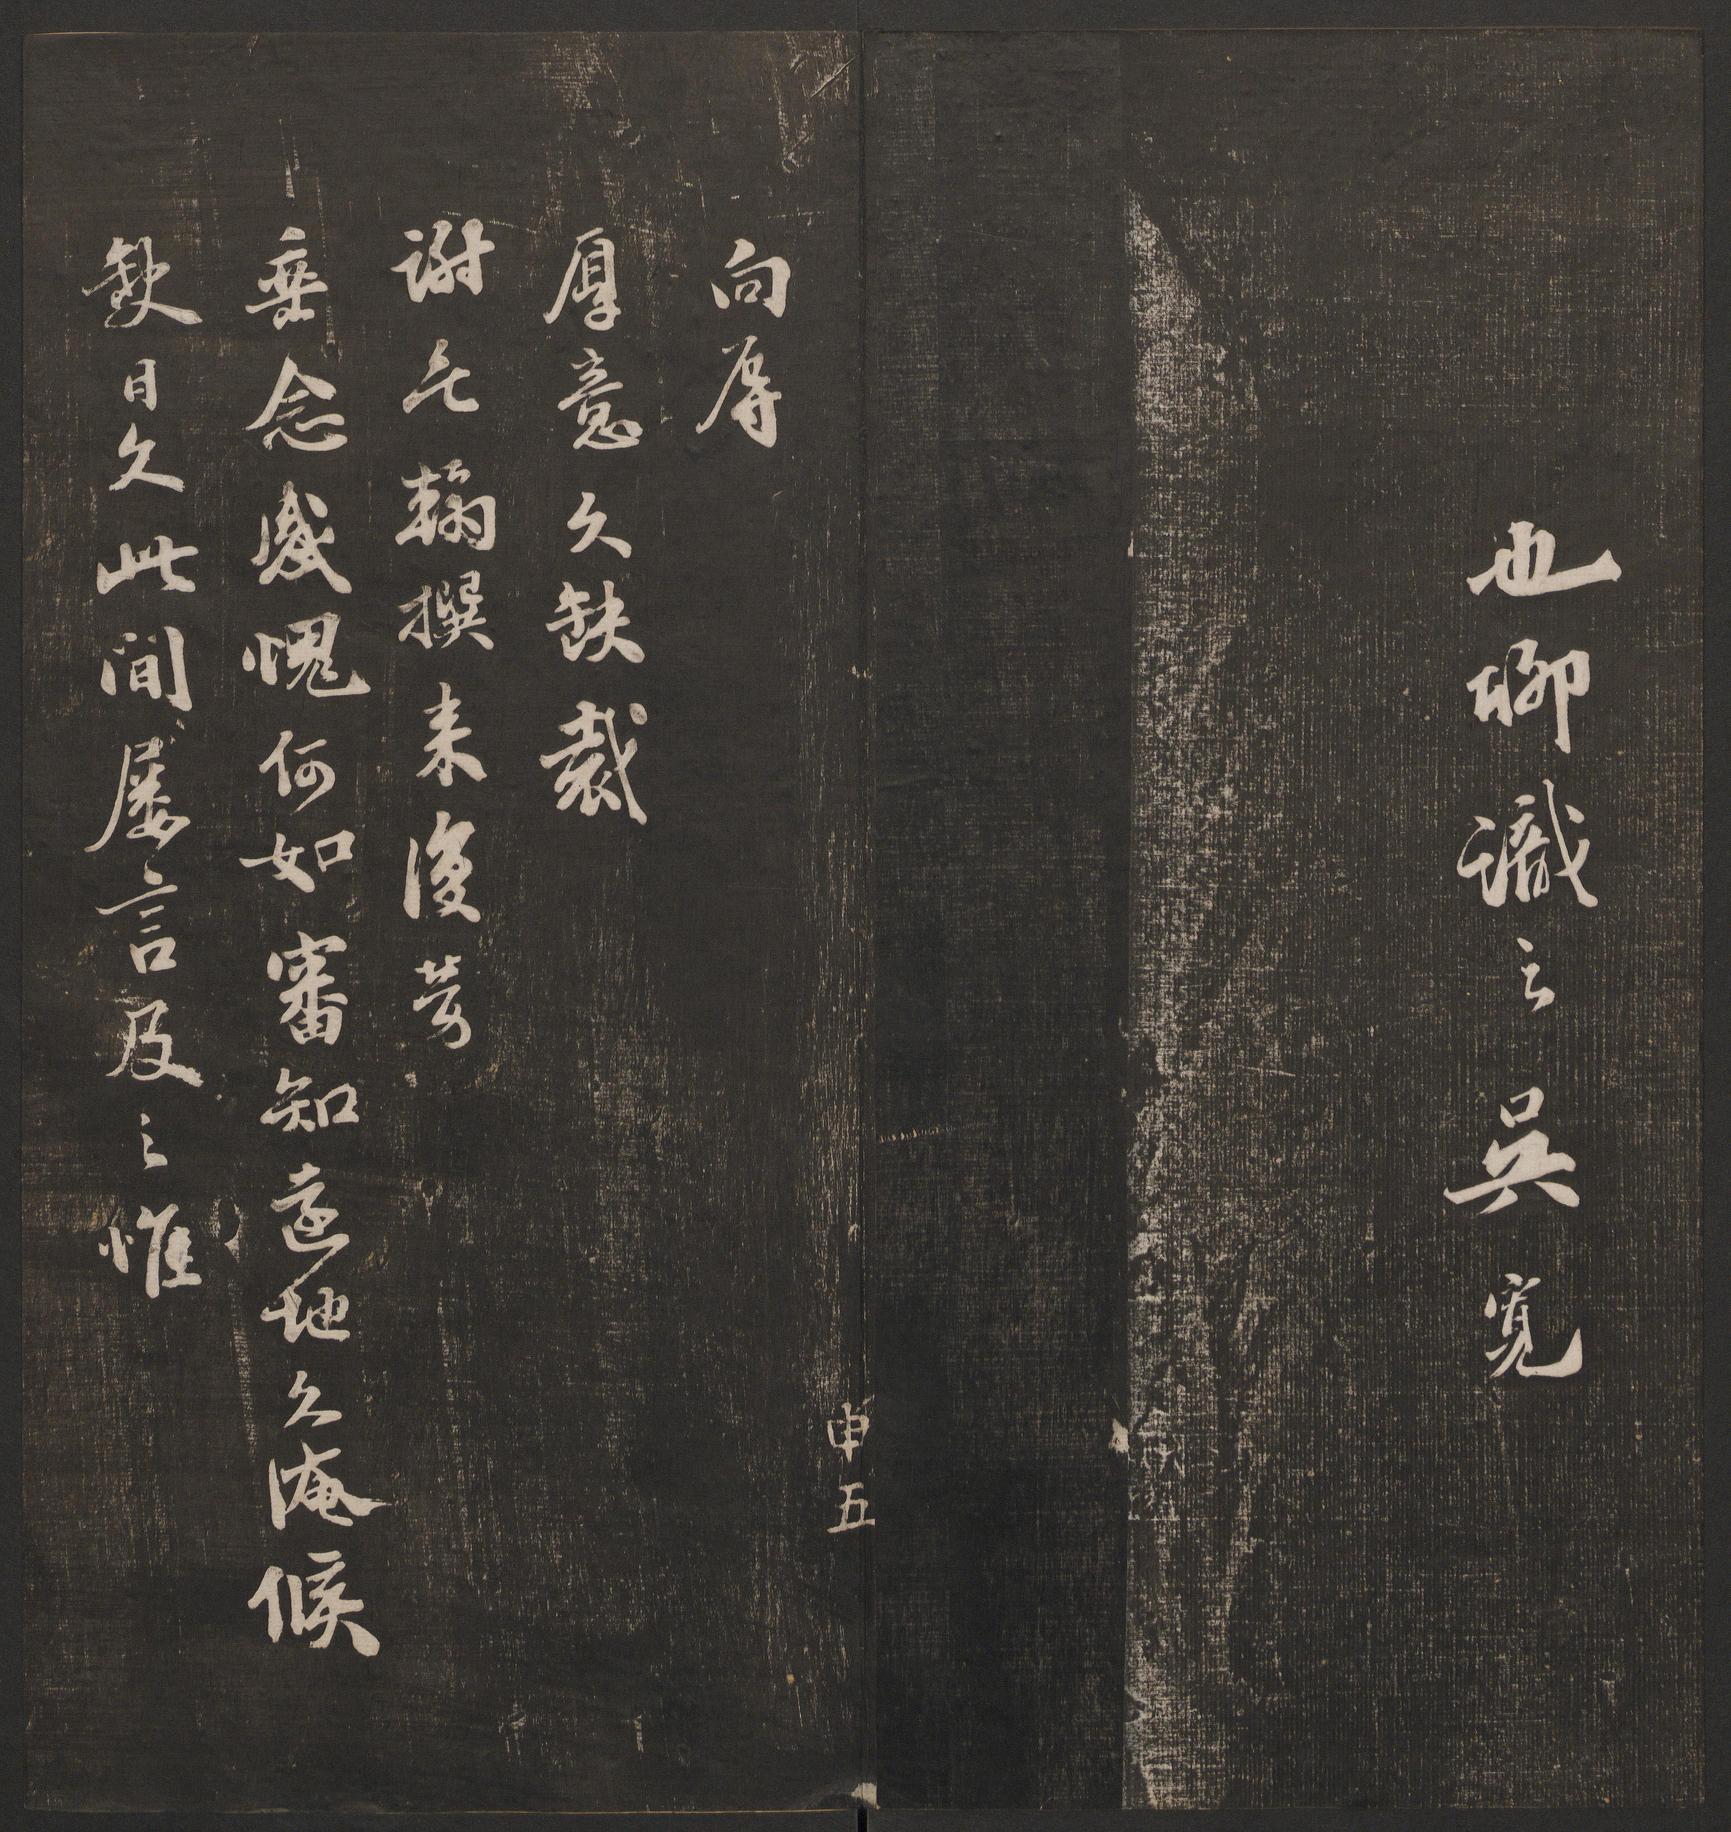 也聊識之吳寬
申五
向辱
厚意久缺裁
謝之翰撰来復勞
垂念感愧何如審知遠地久淹候
缺日久此間屡言及之惟